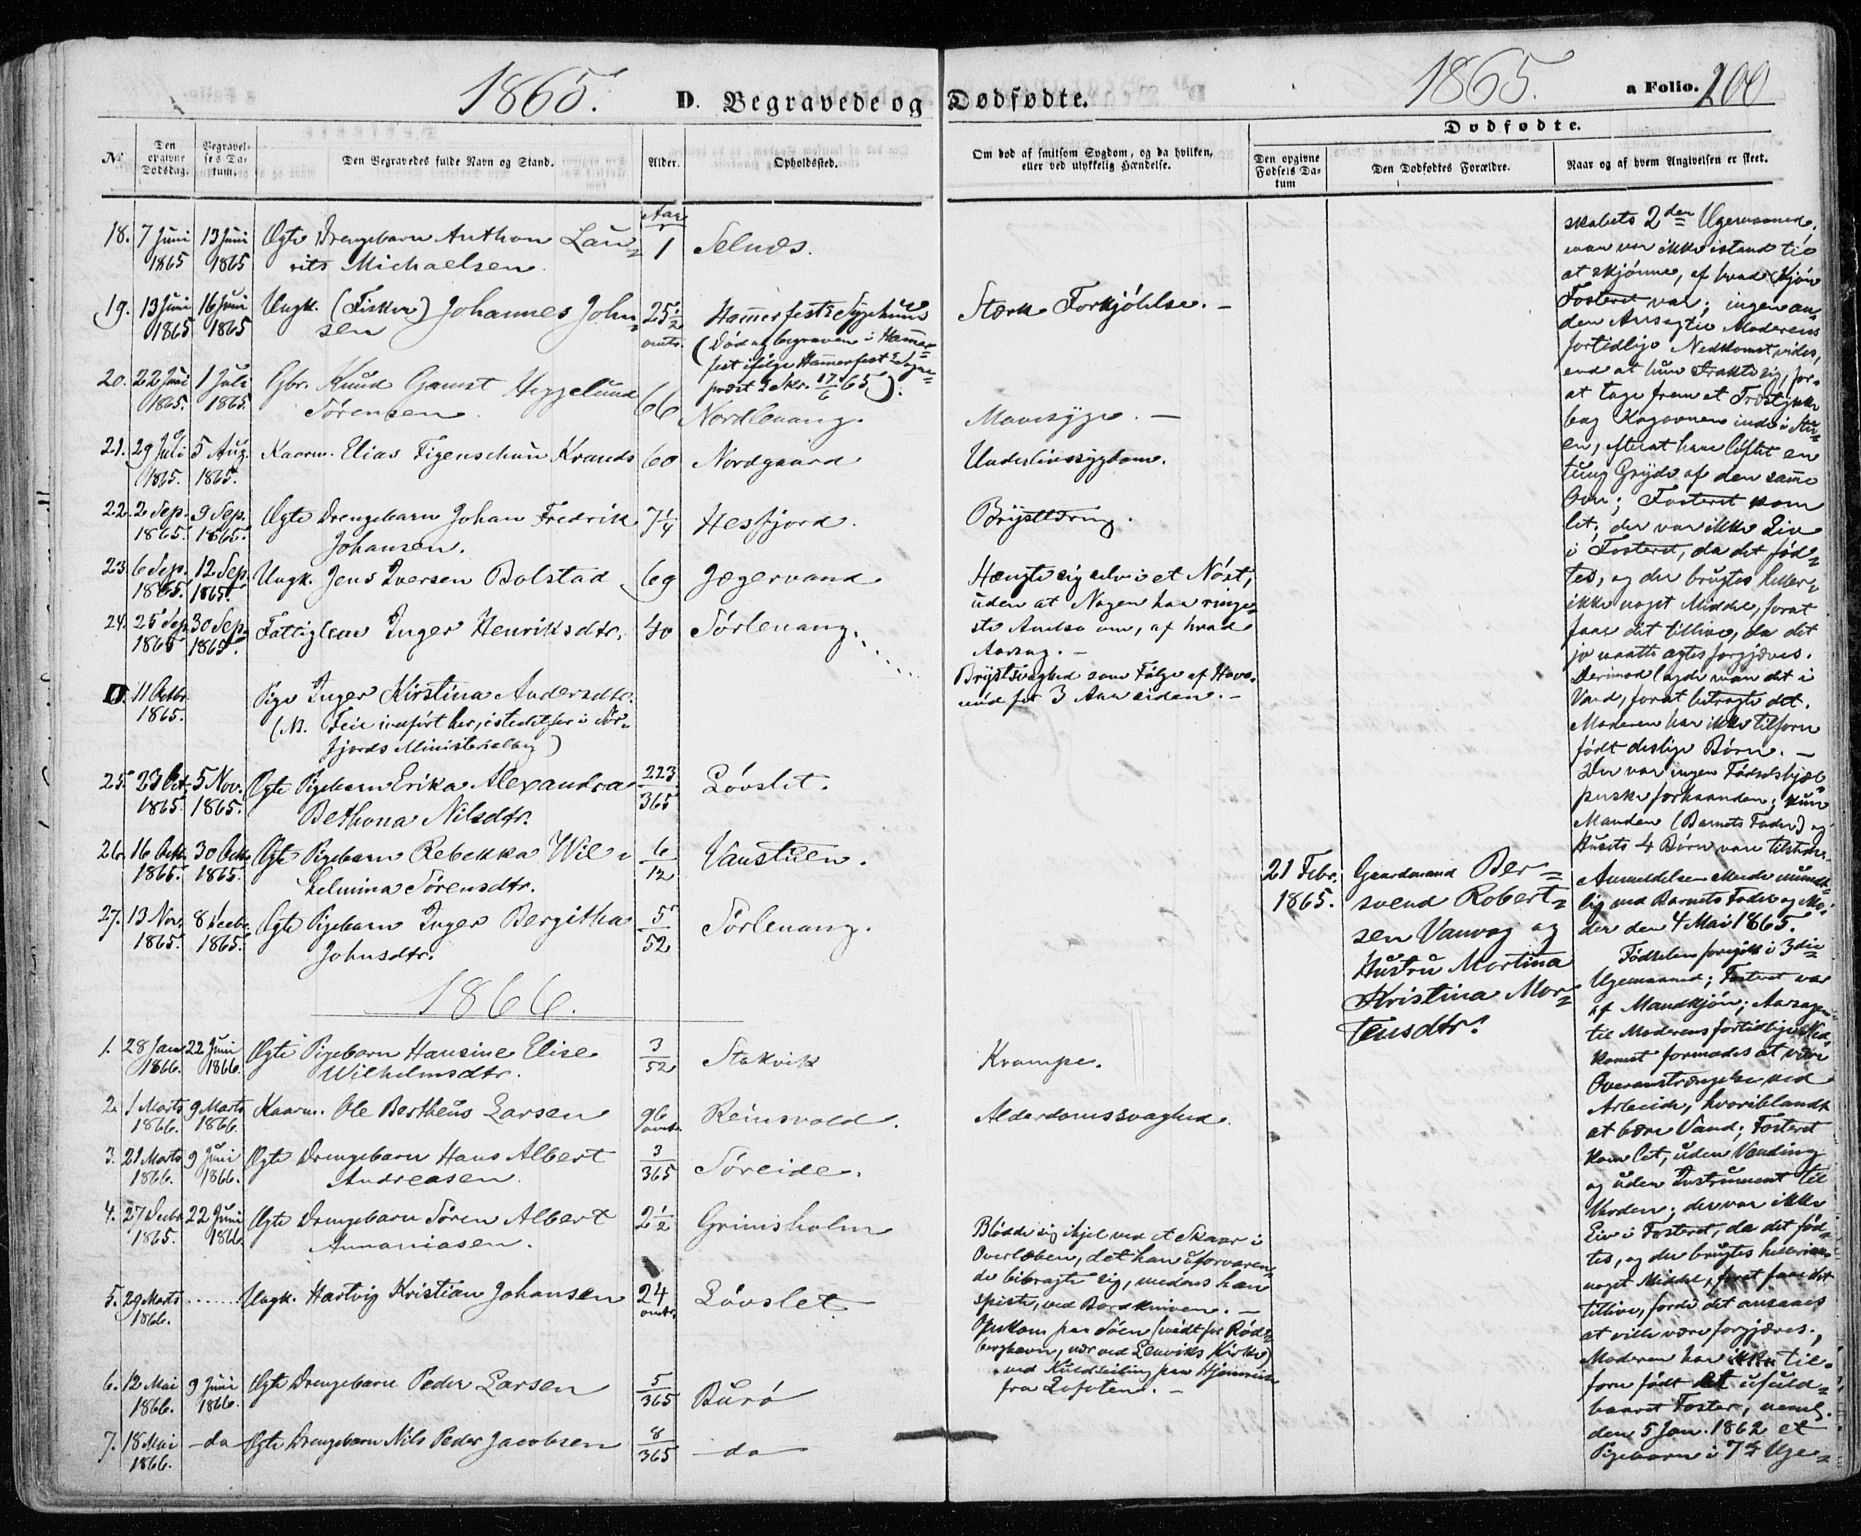 1865.
D. Begravede og Dødfødte.
1865.
a Folio. 200
No.
Den opgivne Dødsdag.
Begravelses Datum.
Den Begravedes fulde Navn og Stand.
Alder.
Opholdssted.
Om død af smitsom Sygdom, og da hvilken, eller ved ulykkelig Hændelse.
Dødfødte.
Den opgivne Fødsels Datum
Den Dødfødtes Forældre.
Naar og af hvem Angivelsen er skeet.
18. 7 Juni 1865 13 Juni 1865 Ægte Drengebarn Anthon Lau-
rits Michaelsen. Aar 1 Selnæs.
19. 13 Juni 1865 16 Juni 1865 Ungk. (Fisker) Johannes John-
sen 25 1/2 omtr. Hammerfests Sygehuus
(Død og begraven i Hammer-
fest ifølge Hammerfest Sogne-
præst Skr. 17/6 65).
Stærk Forkjølelse. —
20. 22 Juni 1865. 1 Juli 1865. Gbr. Knud Gamst Heggelund
Sørensen. 66 Nordlenang. Mavesyge. —
21. 29 Juli 1865. 5 Aug. 1865. Kaarm. Elias Figenschau Krands 60 Nordgaard Underlivssygdom.
22. 2 Sep. 1865. 9 Sep. 1865. Ægte Drengebarn Johan Fredrik
Johansen. 7 1/4 Hesfjord. Brysttæring.
23. 6 Sep. 1865. 12 Sep. 1865. Ungk. Jens Iversen Bolstad 69 Jægervand Hængte sig selv i et Nøst,
uden at Nogen har ringe-
ste Anelse om, af hvad
Aarsag. —
24. 25 Sep. 1865 30 Sep. 1865. Fattiglem Inger Henriksdtr. 40 Sørlenang.
Brystsvaghed som Følge af Hove-
for 3 Aar siden. —
D. 11 Octbr 1865. Pige Inger Kirstina Andersdtr.
(N. Feil indført her, istedetfor i Sør-
fjords Ministerialbog)
25. 23 Oct. 1865. 5 Nov. 1865. Ægte Pigebarn Erika Alexandra
Bethona Nilsdtr. 223/365 Løvslet.
26. 16 Octb. 1865. 30 Octb. 1865. Ægte Pigebarn Rebekka Wil-
helmina Sørensdtr. 6/12 Vanstuen.
27. 13 Nov. 1865. 8 Decbr. 1865. Ægte Pigebarn Inger Bergitha
Johnsdtr. 5/52 Sørlenang.
1866.
1. 28 Jan 1866. 22 Juni 1866. Ægte Pigebarn Hansine Elise
Wilhelmsdtr. 3/52 Stakvik Krampe.
2. 1 Marts 1866. 9 Marts 1866. Kaarm. Ole Bertheus Larsen 96 omtr. Reinsvold. Alderdomssvaghed.
3. 21 Marts 1866. 9 Juni 1866. Ægte Drengebarn Hans Albert
Andreasen. 3/365 Søreide.
4. 27 Decbr 1865. 22 Juni 1866. Ægte Drengebarn Søren Albert
Annaniasen. 2 1/2 Grimsholm Blødde sig ihjel ved et Skaar i
Overlæben, det han uforvaren-
de bibragte sig, medens han
spiste, ved Bordkniven. —
5. 29 Marts 1866. ...... Ungk. Hartvig Kristian Johansen 24 omtr. Løvslet
Omkom paa Søen (midt for Rød-
berghavn, nær ved Lenviks Kirke)
ved Kuldseiling paa Hjemreise
fra Lofoten. —
6. 12 Mai 1866. 9 Juni 1866. Ægte Drengebarn Peder Larsen 5/365 Burø
7. 18 Mai 1866. — da Ægte Drengebarn Nils Peder Jacobsen 8/365 — da —
21 Febr. 1865. Gaardmand Ber-
svend Robert-
sen Vanvag og
Hustru Martina
Kristina Mor-
tensdtr.
skabets 2den Ugemaaned,
man var ikke istand til
at skjønne, af hvad Kjøn
Fosteret var; ingen an-
den Aarsag til Moderens
fortidlige Nedkomst vides,
end at hun strakte sig, for
at tage frem et Træstykke
bag Kagovnen inde i Stu-
en, efterat have løftet en
tung Gryde af den samme
Ovn; Fosteret kom
let; der var ikke Liv
i Fosteret, da det fød-
tes, og der brugtes heller
ikke noget Middel, forat
faae det tillive, da det
jo maatte agtes forgjæves.
Derimod lagde man det i
Vand, forat betragte det.
Moderen har ikke tilforn
født deslige Børn. —
Der var ingen Fødselshjæl-
perske forhaanden; kun
Manden (Barnets Fader) og
Husets 4 Børn vare tilstede.
Anmeldelsen skede mundt-
lig ved Barnets Fader og Mo-
der den 4 Mai 1865.
Fødselen foregik i 3die
Ugemaaned; Fosteret var
af Mandkjøn; Aarsagen
til Moderens fortidlige Ned-
komst formodes at være
Overanstrængelse ved
Arbeide, hvoriblandt
at bære Vand; Fosteret
kom let, uden Vending
og uden Instrument til
Verden; der var ikke
Liv i Fosteret, da det fød-
tes, og der brugtes heller ikke
noget Middel, forat faae det
tillive, fordi det ansaaes
at ville være forgjæves.,
Moderen har ikke til-
forn født et ufuld-
baaret Foster, neml.
den 5 Jan. 1862 et
Pigebarn i 7de Uge-